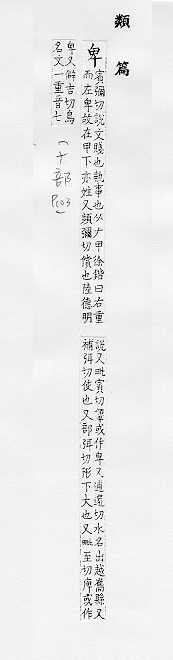 類篇
卑 賓彌切說文賤也執事也从𠂇甲徐鍇曰右重
而左卑故在甲下亦姓又頻彌切儐也陸德明
說又毗賓切或作卑又逋還切水名出越嶲縣又
補弭切使也又部弭切形下大也又毗至切庳或作
卑又觧言切鳥
名文一重音七
(十部 P103)